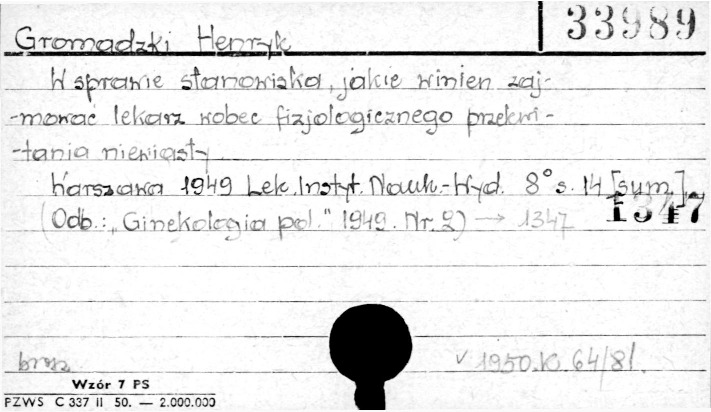 33989
Gromadzki Henryk
W sprawie stanowiska, jakie winien zaj-
-mować lekarz wobec fizjologicznego przekwi-
-tania niewiasty
Warszawa 1949 Lek. Instyt. Nauk.-Wyd. 8° s. 14 [sum.]
1347
(Odb.: „Ginekologia pol." 1949. Nr. 2) → 1347
brosz
v 1950.K. 64/81.
Wzór 7 PS
PZWS C 337 II 50. — 2.000.000